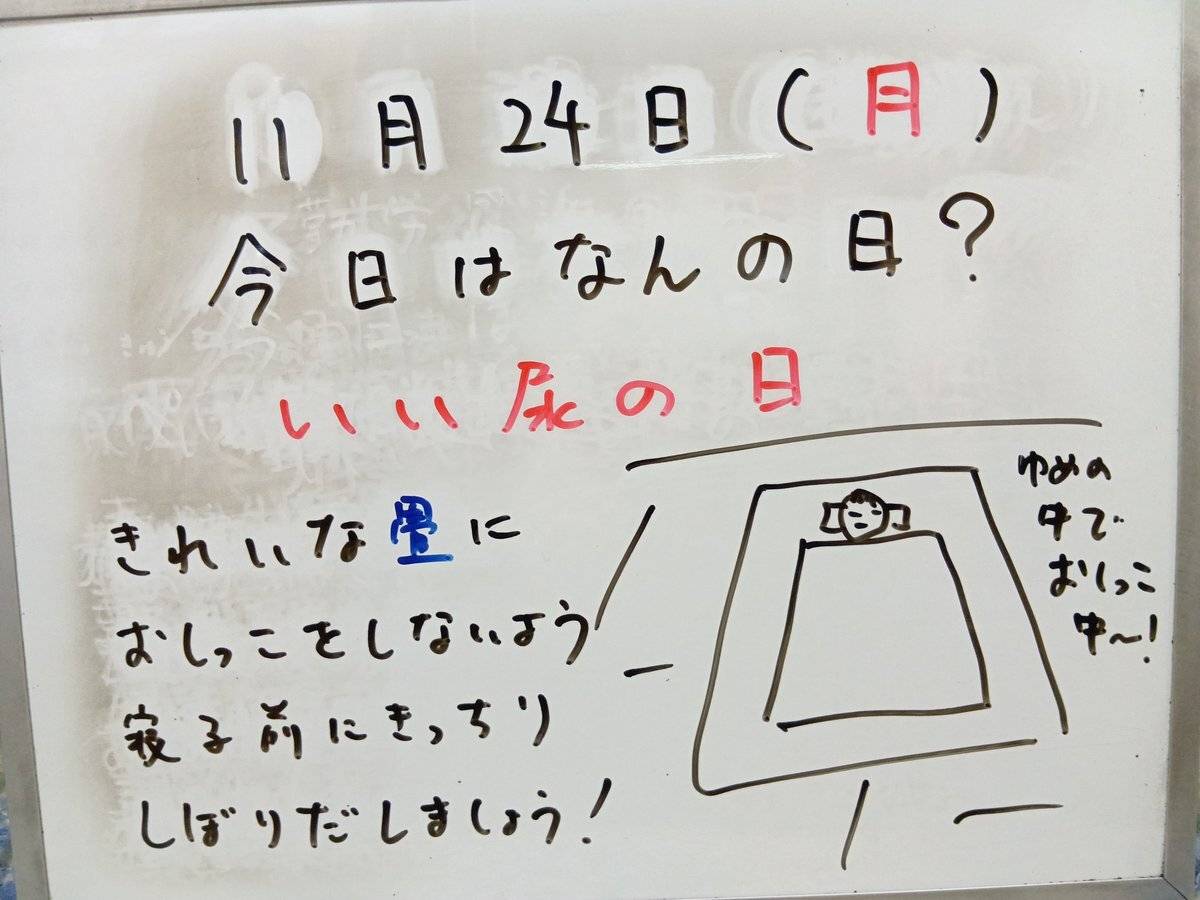 11月24日(月)
今日はなんの日?
いい尿の日
きれいな畳に
おしっこをしないよう
寝る前にきっちり
しぼりだしましょう!
ゆめの
中で
おしっこ
中〜!